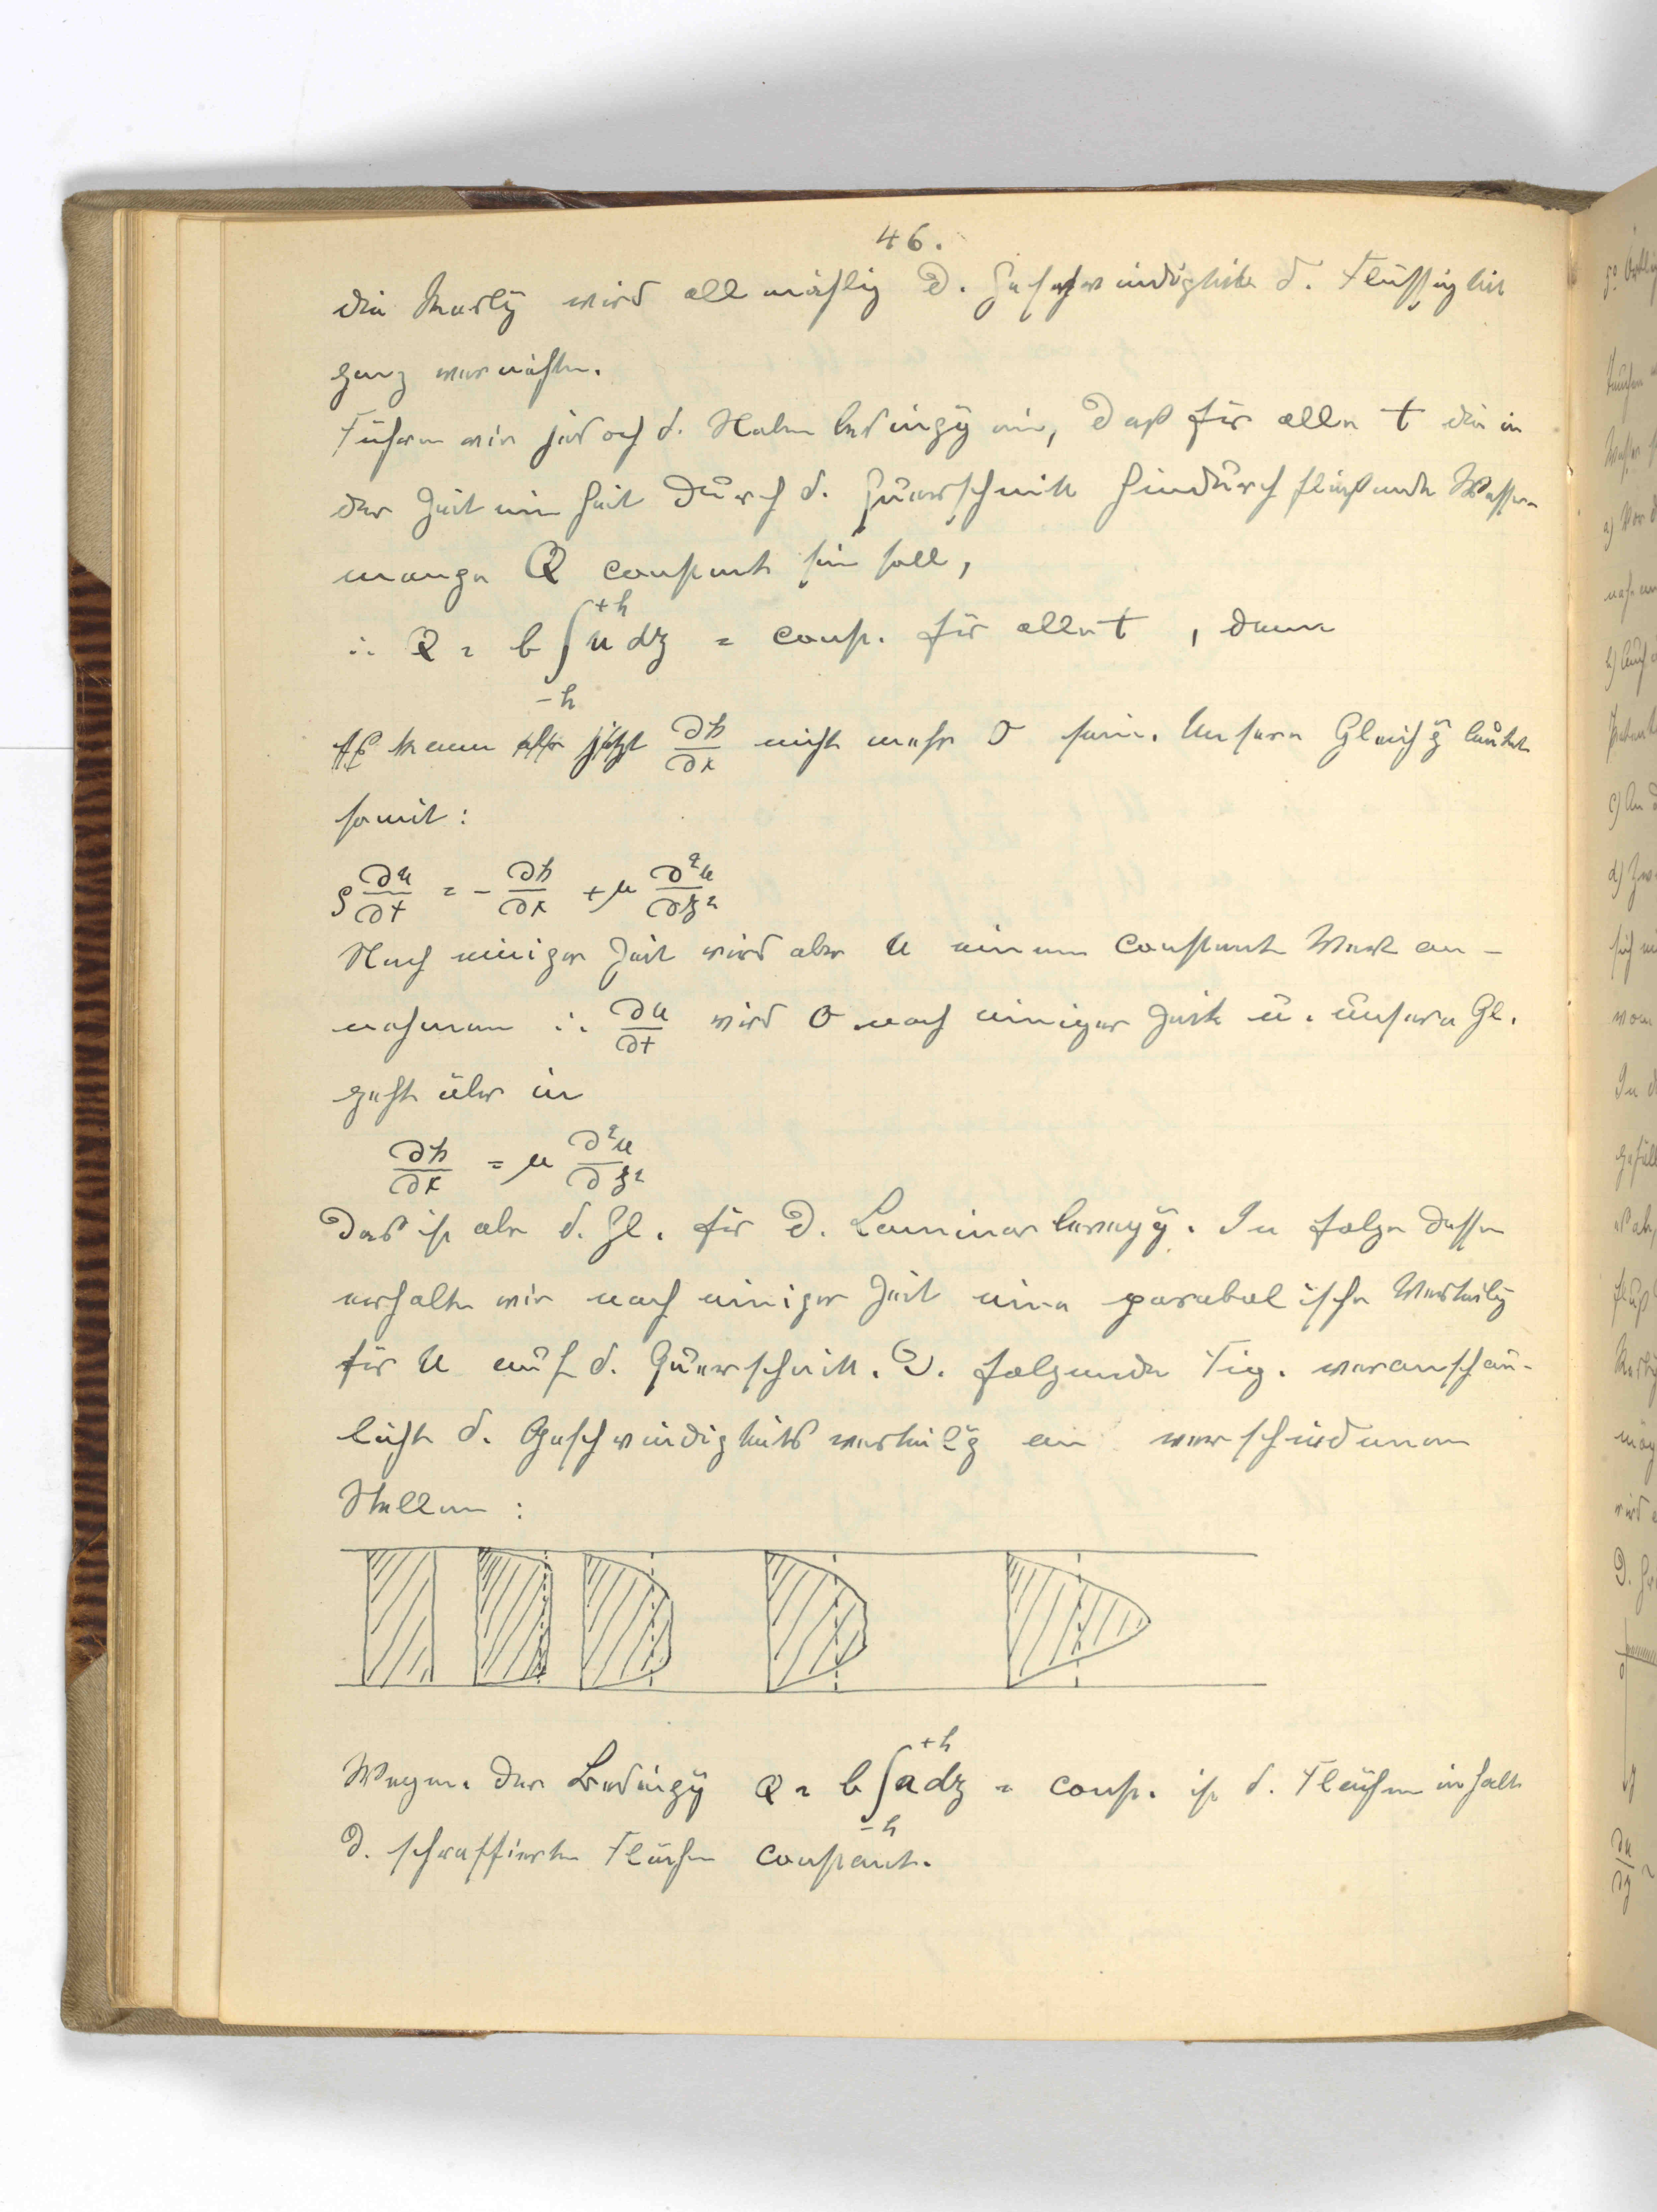 46.
die Reibg wird allmählig d. Geschwindigkeit d. Flüssigkeit
ganz vernichten.
Führen wir jedoch d. Nebenbedingg ein, daß für alle t die in
der Zeiteinheit durch d. Querschnitt hindurch fließende Wasser-
menge Q constant sein soll,
∴ Q = b ∫₋ₕ⁺ʰ u dz = const. für alle t , dann
kann jetzt ∂p/∂x nicht mehr 0 sein. Unsere Gleichg lautet
somit:
ρ ∂u/∂t = - ∂p/∂x + μ ∂²u/∂z²
Nach einiger Zeit wird aber u einen constant Wert an-
nehmen ∴ ∂u/∂t wird 0 nach einiger Zeit u. unsere Gl.
geht über in
∂p/∂x = μ ∂²u/∂z²
Das ist aber d. Gl. für d. Laminarbewegg. In folge dessen
erhalten wir nach einiger Zeit eine parabolische Verteilg
für u auf d. Querschnitt. D. folgende Fig. veranschau-
licht d. Geschwindigkeitsverteilg an verschiedenen
Stellen :
Wegen der Bedingg Q = b ∫₋ₕ⁺ʰ u dz = const. ist d. Flächeninhalt
d. schraffierten Flächen constant.